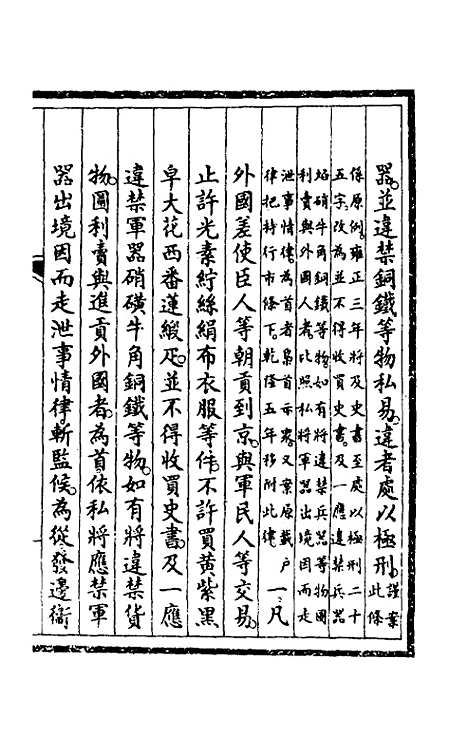 器並違禁銅鐵等物私易違者處以極刑謹案此條
係原例雍正三年將及史書至處以極刑二十
五字改為並不得收買史書及一應違禁兵器
焰硝牛角銅鐵等物如有將違禁兵器等物圖
利賣與外國人者比照私將軍器出境因而走
泄事情律為首者梟首示衆又案原載戶
律把持行市條下乾隆五年移附此律 一凡
外國差使臣人等朝貢到京與軍民人等交易
止許光素紵絲絹布衣服等件不許買黃紫黑
皁大花西番蓮緞疋並不得收買史書及一應
違禁軍器硝磺牛角銅鐵等物如有將違禁貨
物圖利賣與進貢外國者為首依私將應禁軍
器出境因而走泄事情律斬監候為從發邊衞